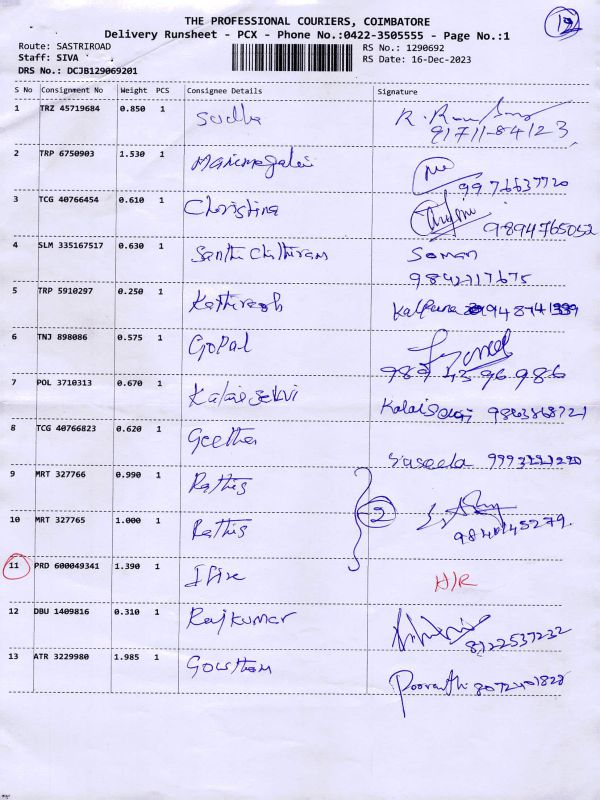 THE PROFESSIONAL COURIERS, COIMBATORE
12
Delivery Runsheet - PCX - Phone No.:0422-3505555 - Page No.:1
Route: SASTRIROAD RS No.: 1290692
Staff: SIVA RS Date: 16-Dec-2023
DRS No.: DCJB129069201
S No Consignment No Weight PCS Consignee Details Signature
1 TRZ 45719684 0.850 1 Sudha
91711-84123
2 TRP 6750903 1.530 1
9976637720
3 TCG 40766454 0.610 1 Christina
9894765052
4 SLM 335167517 0.630 1 Santhi Chithiram Soman
9842117675
5 TRP 5910297 0.250 1 Kathiresh Kalpana
6 TNJ 898086 0.575 1 GOPAL
989 43 96 986
7 POL 3710313 0.670 1 Kalaiselvi
8 TCG 40766823 0.620 1 Geetha
Saseela
9 MRT 327766 0.990 1 Rathis
2
10 MRT 327765 1.000 1 Rathis
9840145279.
11 PRD 600049341 1.390 1 H/R
12 DBU 1409816 0.310 1 Rajkumar
8122537232
13 ATR 3229980 1.985 1 Gowtham
8072401828